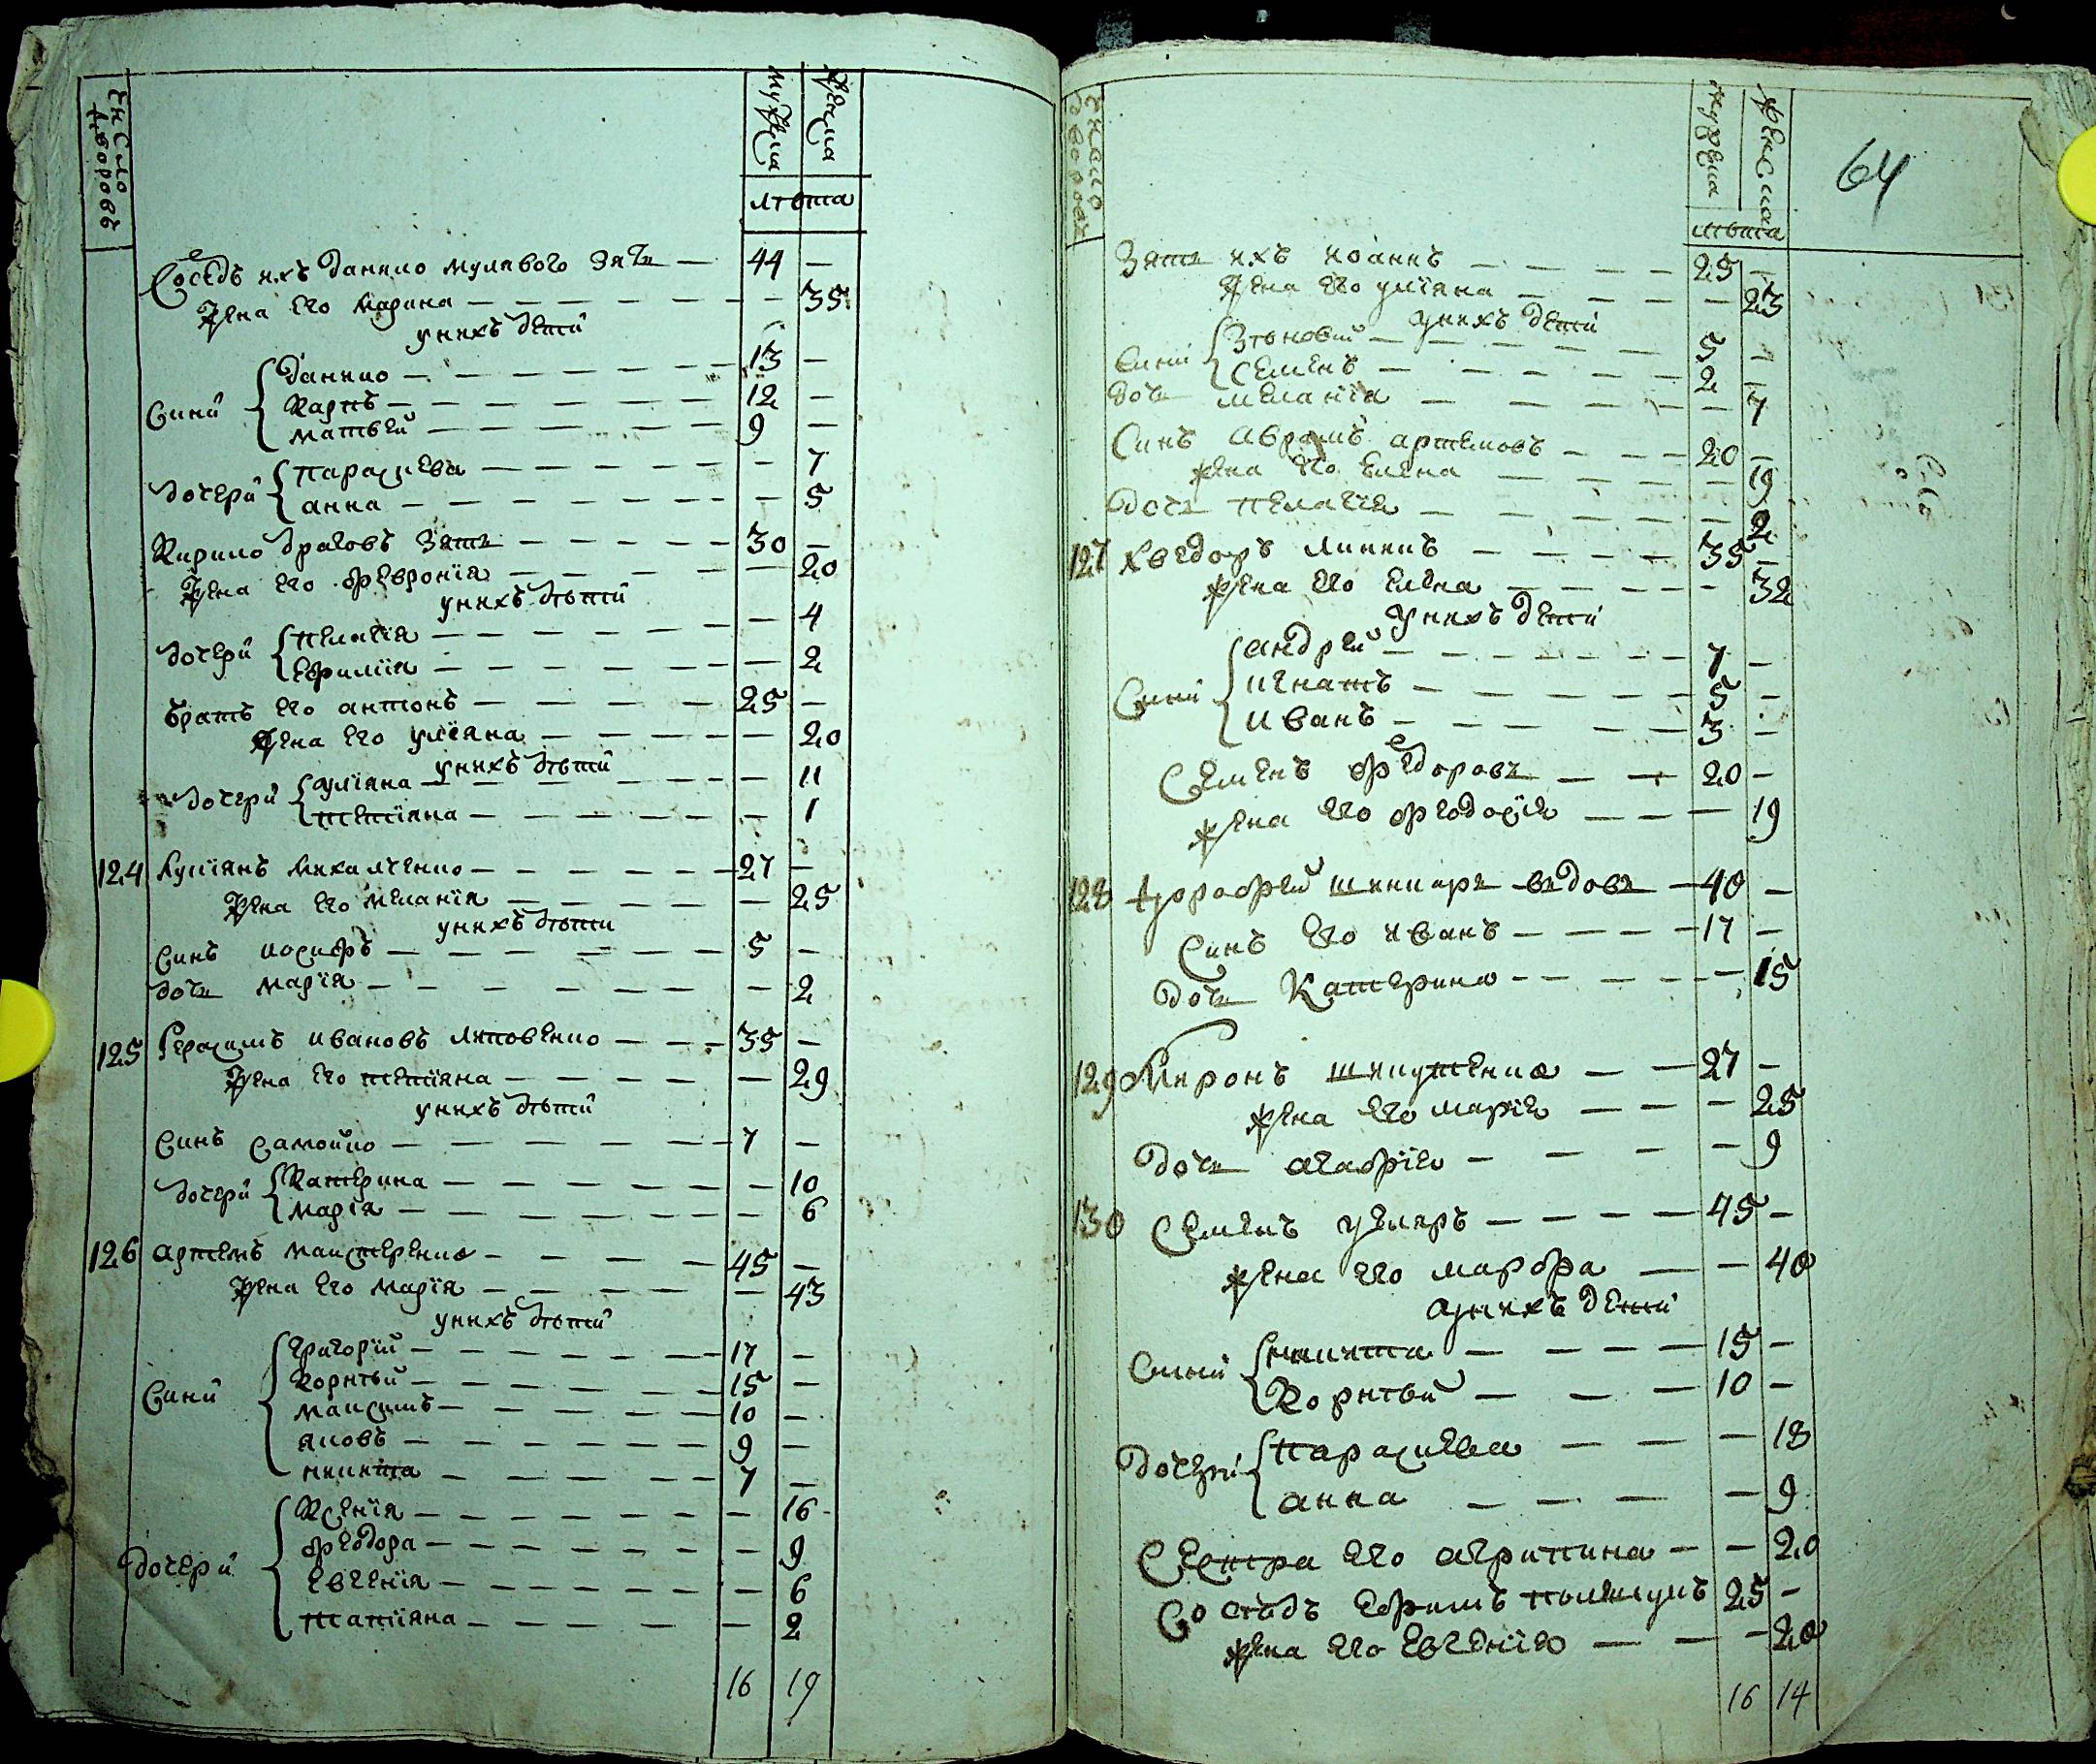 Число дворовъ
мужеска
женска
лѣта
Соседъ ихъ Данило Мулявого зять — 44 —
Жена его Марина — — 35
у нихъ дети
Сини Данило — 13 —
Карпъ — 12 —
Матвей — 9 —
Дочери Параскева — — 7
Анна — — 5
Кирило зять — 30 —
Жена его Феврония — — 20
у нихъ дѣти
Дочери Пелагія — — 4
Евфимія — — 2
Братъ его Антонъ — 25 —
Жена его Уліяна — — 20
у нихъ дѣти
Дочери Уліяна — — 11
Тетіяна — — 1
124 Лукіянъ Михалченко — 27 —
Жена его Меланія — — 25
у нихъ дѣти
Синъ Иосифъ — 5 —
Дочь Марія — — 2
125 Герасимъ Ивановъ — 35 —
Жена его Тетіяна — — 29
у нихъ дѣти
Синъ Самойло — 7 —
Дочери Катерина — — 10
Марія — — 6
126 Артемъ Майстеренко — 45 —
Жена его Марія — — 43
у нихъ дѣти
Сини Григорій — 17 —
Корнѣй — 15 —
Максимъ — 10 —
Яковъ — 9 —
Никита — 7 —
Дочери Ксенія — — 16
Феодора — — 9
Евгенія — — 6
Татіяна — — 2
16 19
Число дворовъ
мужеска
женска
лѣта
64
Зять ихъ Иоаннъ — 25 —
Жена его Уліяна — — 23
у нихъ дети
Сини Зѣновий — 5 —
Семенъ — 2 —
Дочь Меланія — — 7
Синъ Аврамъ Артемовъ — 20 —
Жена его Елена — — 19
Дочь Пелагія — — 2
127 Хведоръ — 35 —
Жена его Елена — — 32
у нихъ дети
Сини Андрей — 7 —
Игнатъ — 5 —
Иванъ — 3 —
Семенъ Федоровъ — 20 —
Жена его Феодосія — — 19
128 Дорофей шинкаръ вдовъ — 40 —
Синъ его Иванъ — 17 —
Дочь Катерина — — 15
129 Миронъ — 27 —
Жена его Марія — — 25
Дочь Агафія — — 9
130 Семенъ — 45 —
Жена его Марфа — — 40
у нихъ дети
Сини Никита — 15 —
Корнѣй — 10 —
Дочери Параскева — — 18
Анна — — 9
Сестра его Агрипина — — 20
Сосѣдъ Ефимъ 25 —
Жена его Евгенія — — 20
16 14